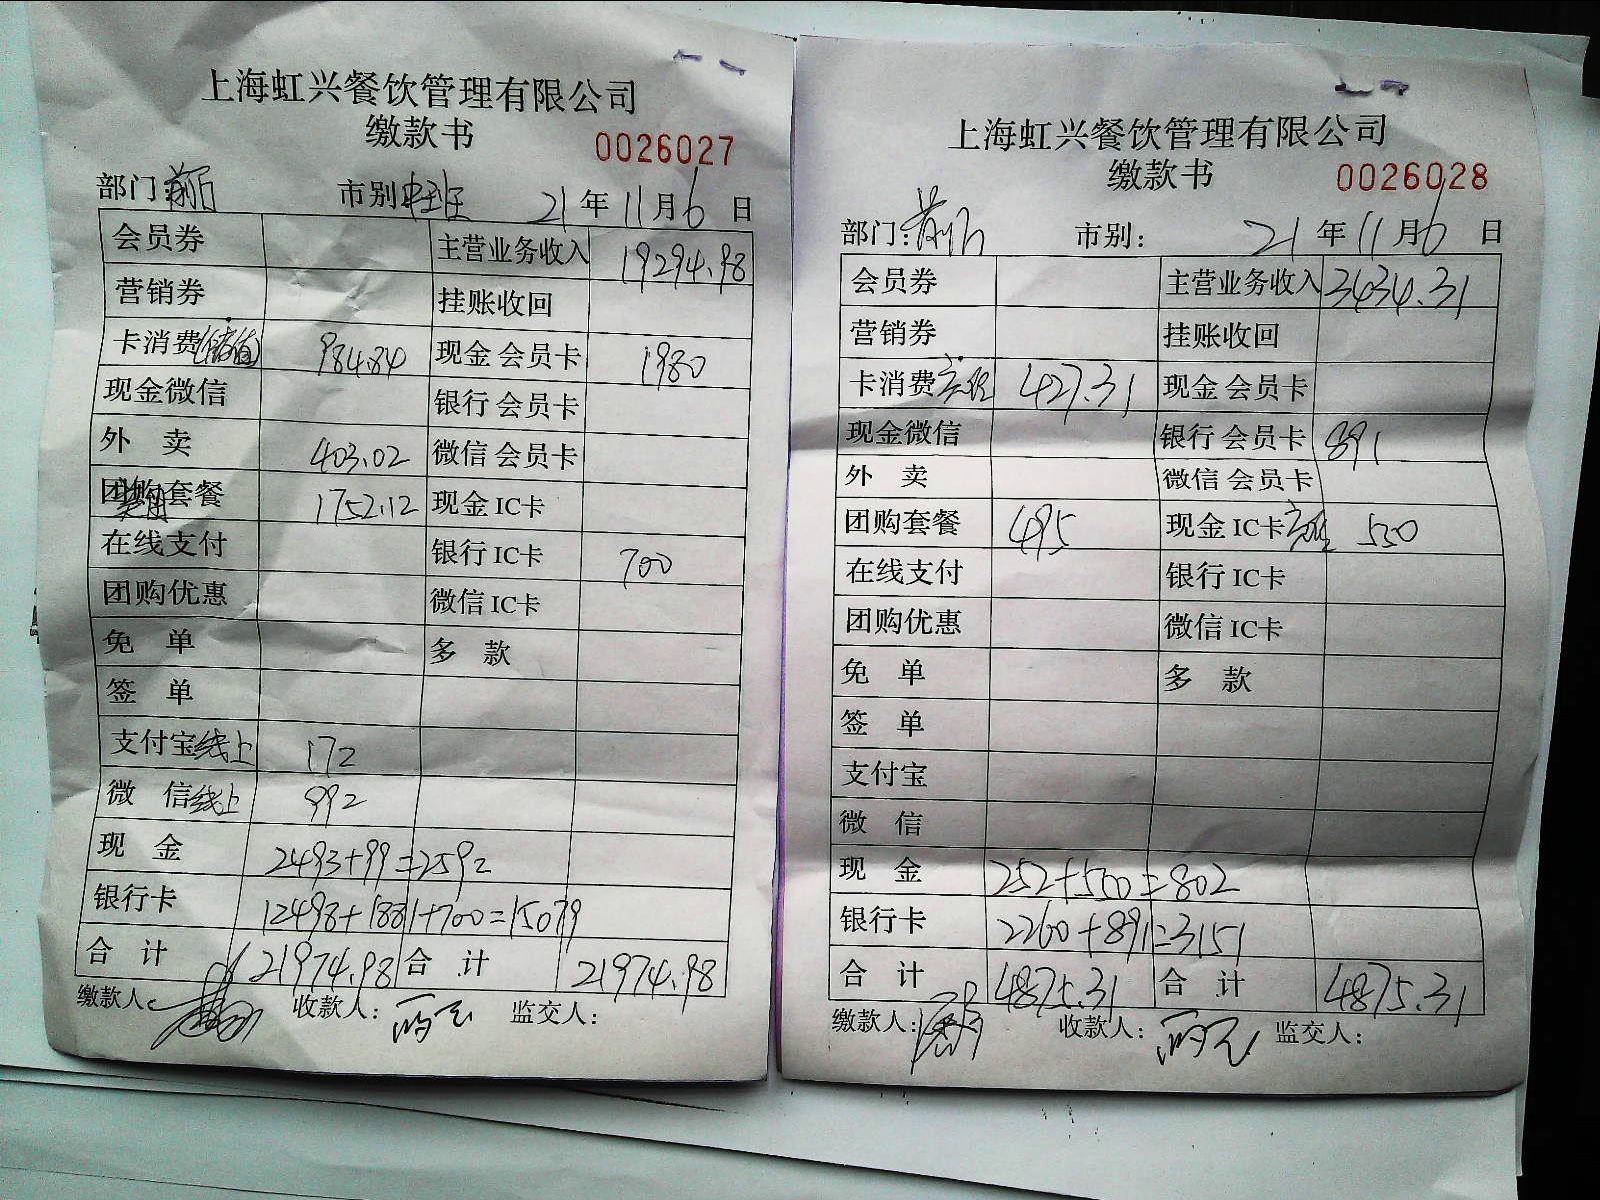 上海虹兴餐饮管理有限公司
缴款书 0026027
部门 市别 21年11月6日
会员券 主营业务收入 19294.98
营销券 挂账收回
卡消费(储值) 984.84 现金会员卡 1980
现金微信 银行会员卡
外 卖 403.02 微信会员卡
团购套餐 美团 1752.12 现金IC卡
在线支付 银行IC卡 700
团购优惠 微信IC卡
免 单 多 款
签 单
支付宝线上 172
微 信线上 992
现 金 2493+99=2592
银行卡 12498+1881+700=15079
合 计 21974.98 合 计 21974.98
缴款人: 收款人: 监交人:
上海虹兴餐饮管理有限公司
缴款书 0026028
部门: 市别: 21年11月6日
会员券 主营业务收入 3434.31
营销券 挂账收回
卡消费 427.31 现金会员卡
现金微信 银行会员卡 891
外 卖 微信会员卡
团购套餐 495 现金IC卡 550
在线支付 银行IC卡
团购优惠 微信IC卡
免 单 多 款
签 单
支付宝
微 信
现 金 252+550=802
银行卡 2260+891=3151
合 计 4875.31 合 计 4875.31
缴款人: 收款人: 监交人: